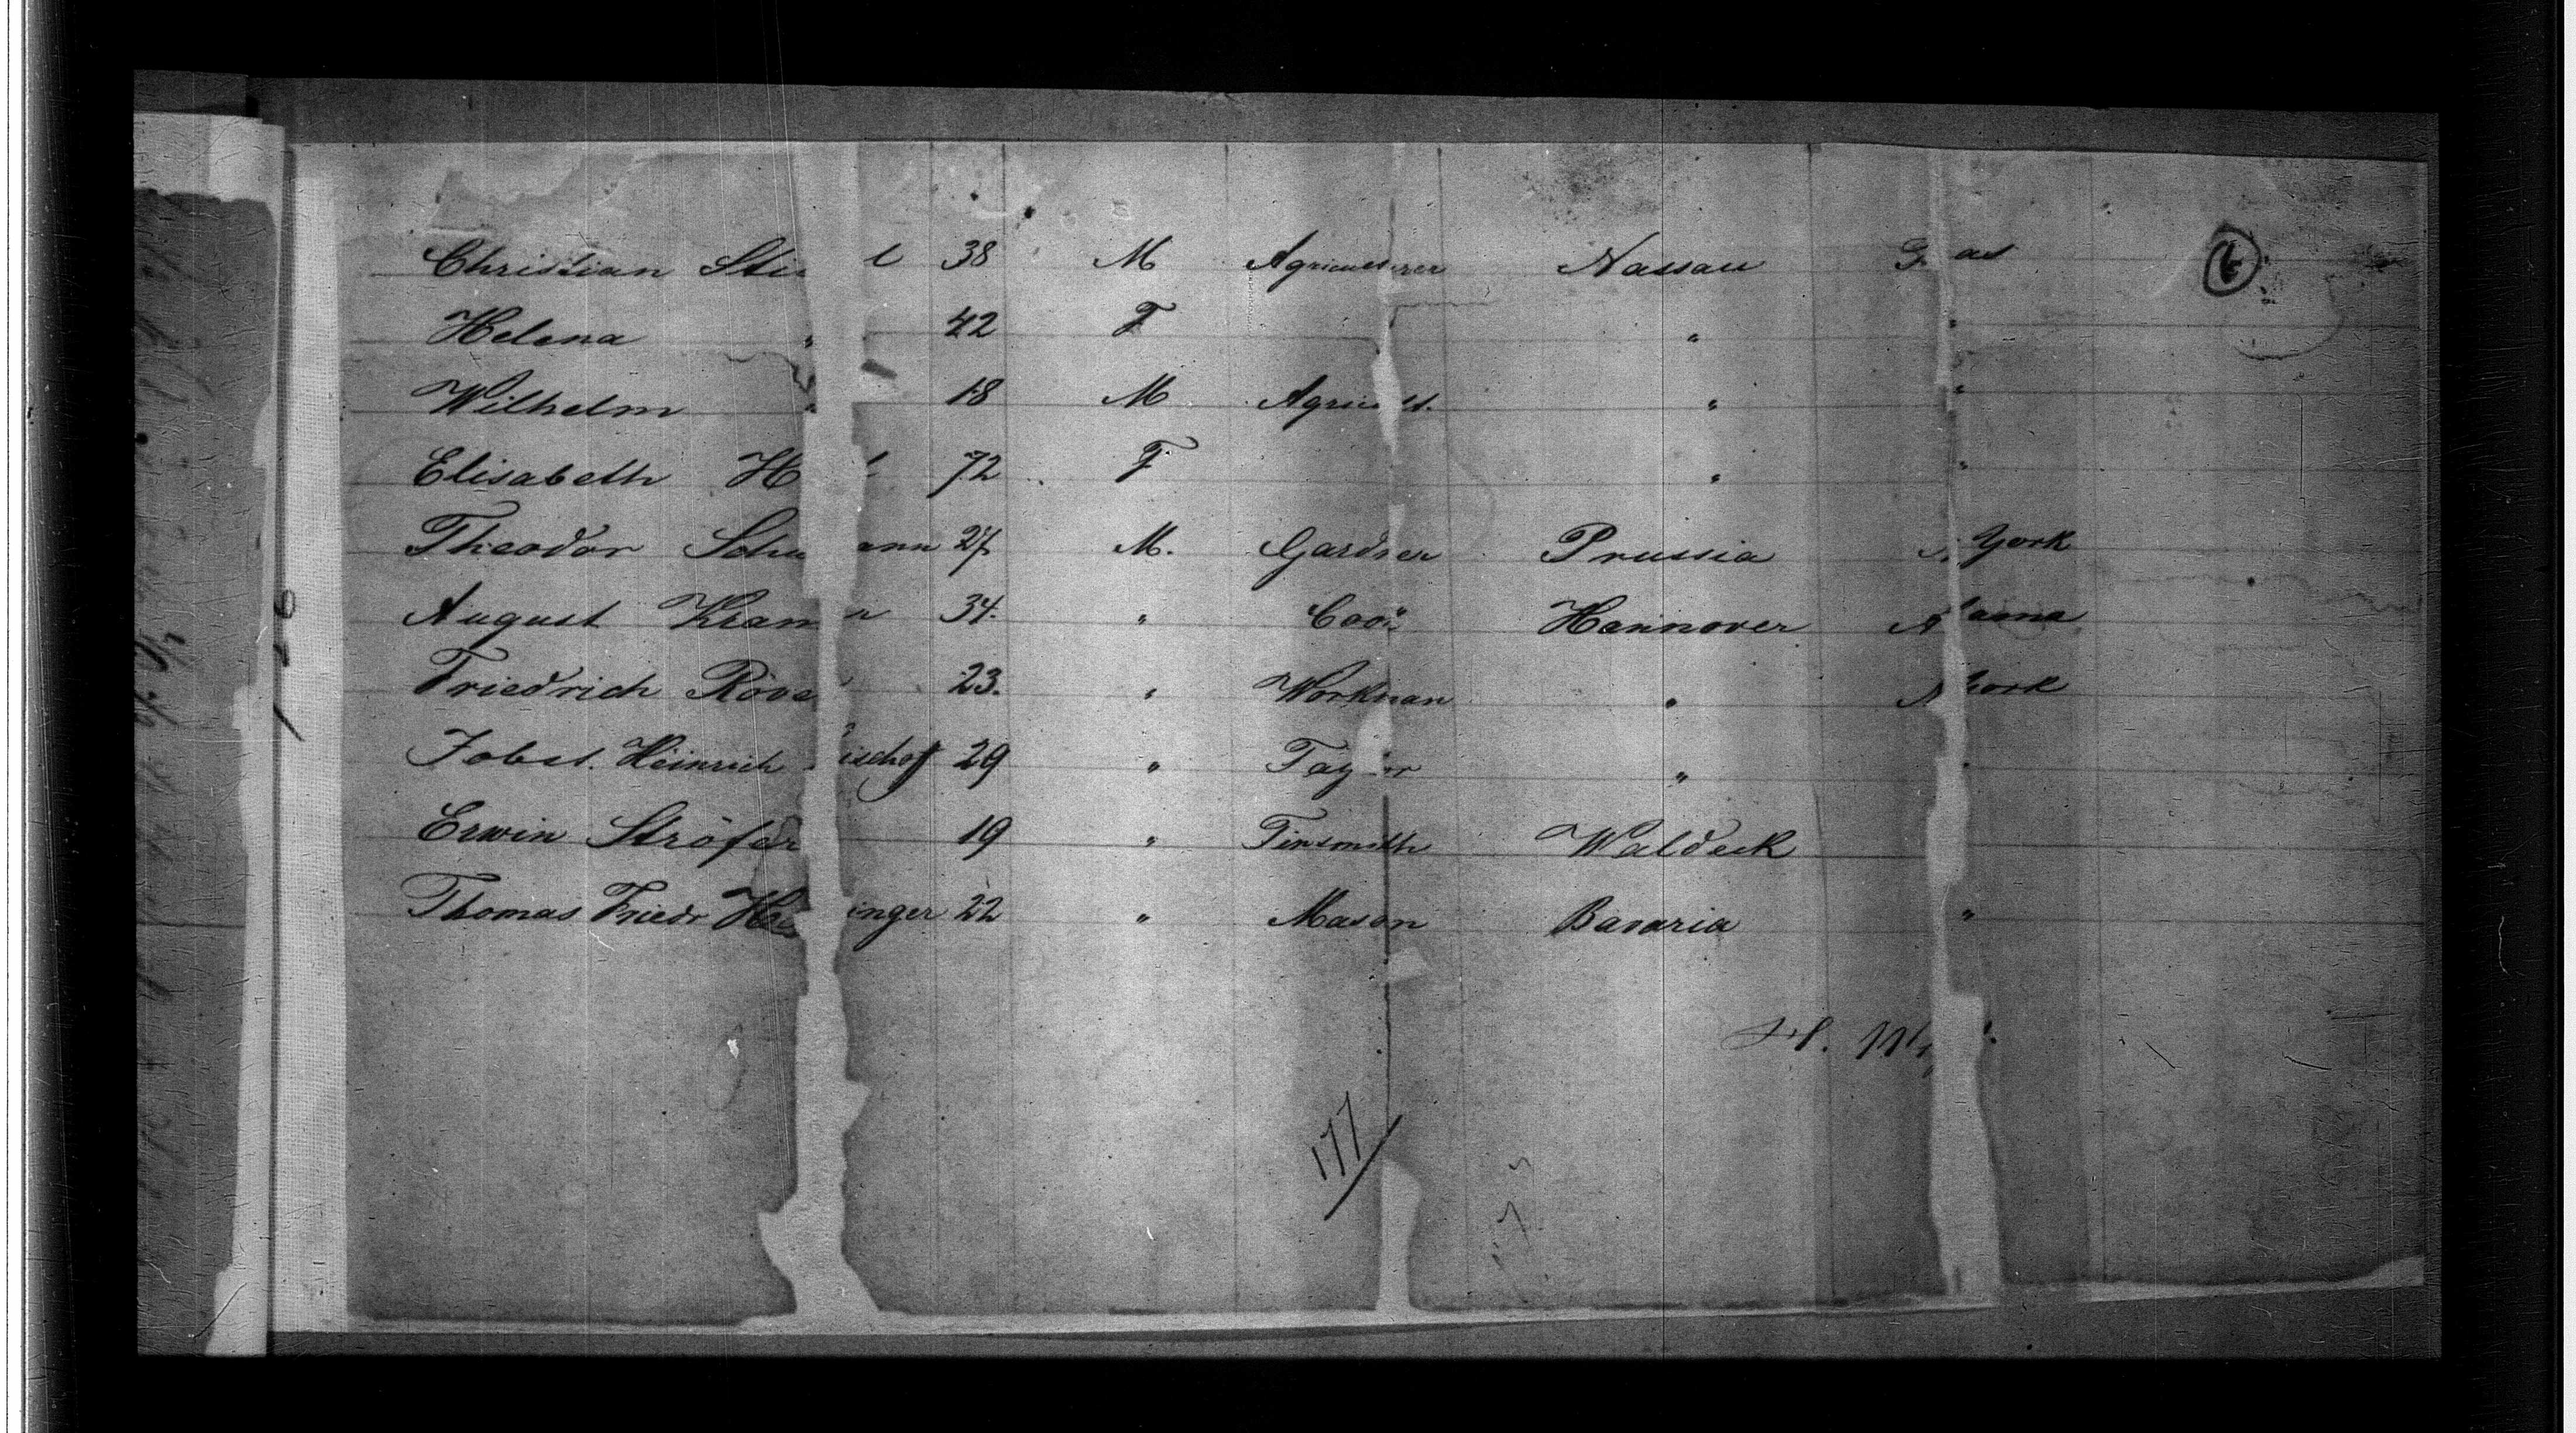 Christian Sti l 38 M Agricul rer Nassau as
Helena " 42 F " "
Wilhelm " 18 M Agricult. " "
Elisabeth H 72 F " "
Theodor Schu ann 27 M. Gardner Prussia York
August Kram 34. " Hannover
Friedrich Röve 23. " Workman " York
Jobst. Heinrich ischof 29 " Tay or " "
Erwin Ströfer 19 " Tinsmith Waldeck
Thomas Friedr inger 22 " Mason Bavaria "
H.
177
126